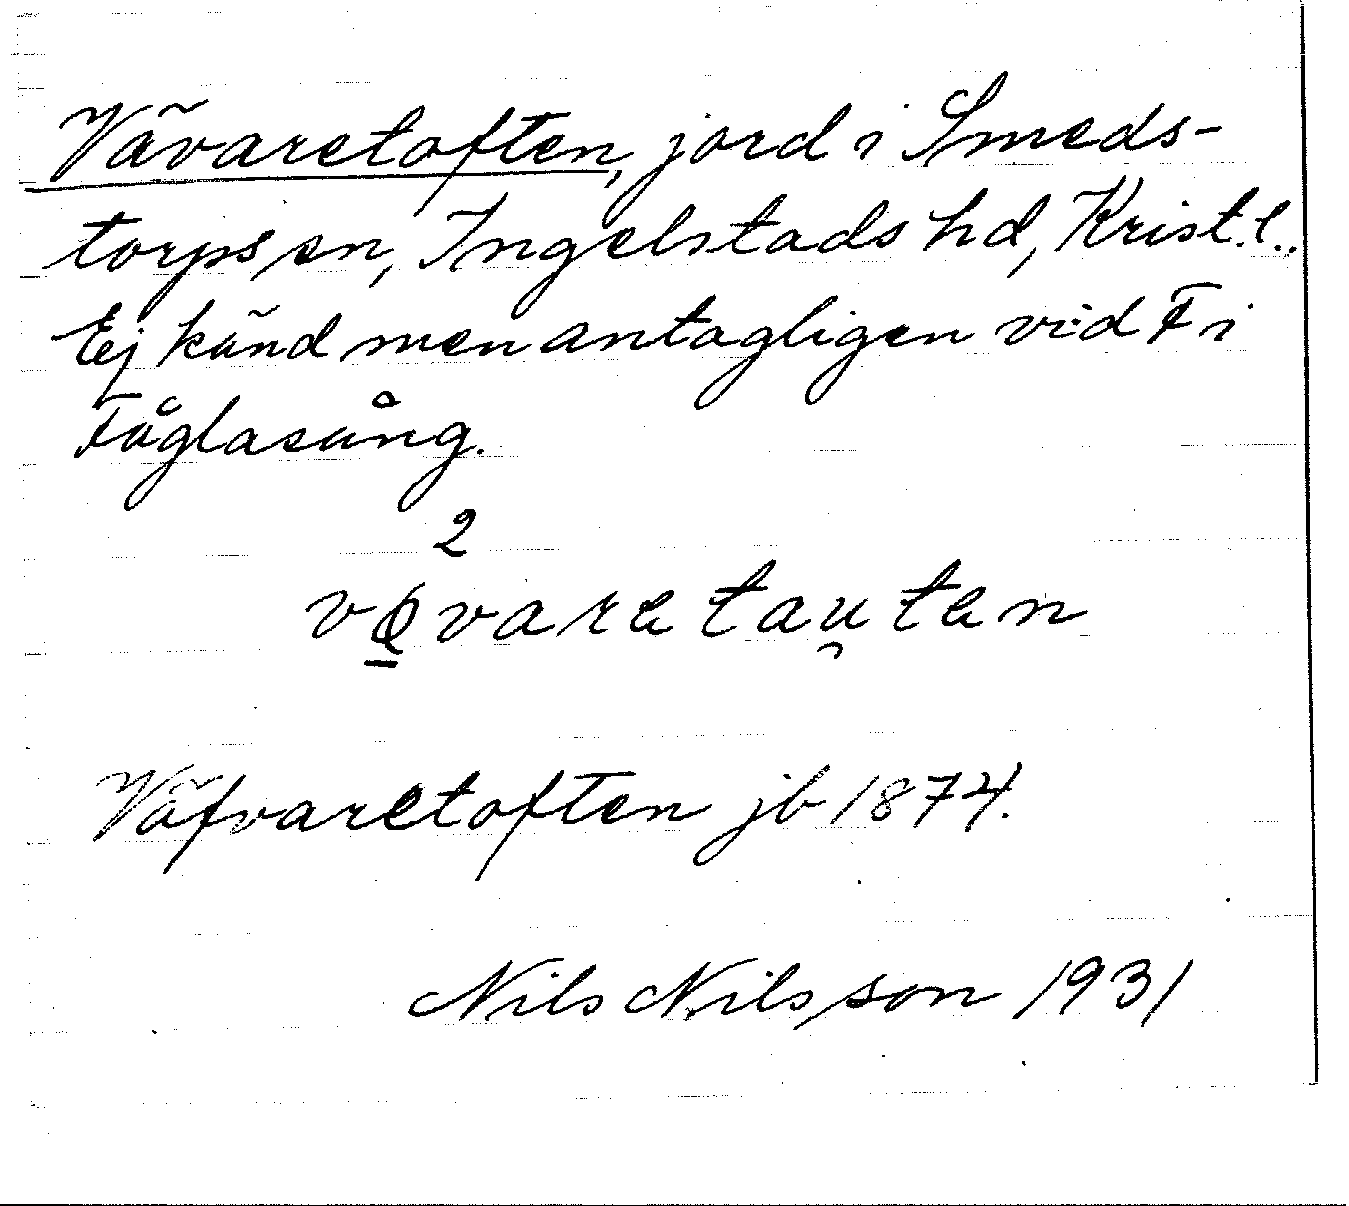 Vävaretoften, jord i Smeds-
torps sn, Ingelstads hd, Krist. l..
Ej känd men antagligen vid F i
Fåglasång.
2
vǫvaretau̯ten
Väfvaretoften jb 1874.
Nils Nilsson 1931